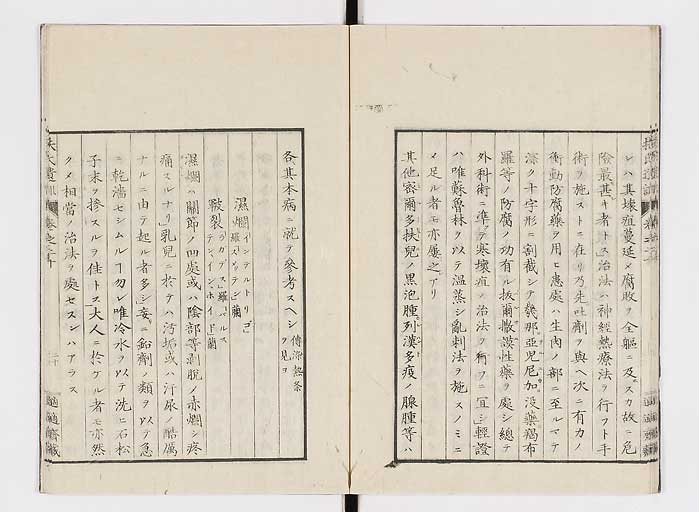 レハ其壊疽蔓延メ腐敗ヲ全軀ニ及スカ故ニ危
險最甚キ者トス治法ハ神経熱療法ヲ行フト手
術ヲ施ストニ在リ乃先吐劑ヲ與ヘ次ニ有力ノ
衝動防腐藥ヲ用ヒ患處ハ生肉ノ部ニ至ルマテ
深ク十字形ニ割截シテ幾那亞兒尼加没藥羯布
羅等ノ防腐ノ功有ル抜爾撒謨性藥ヲ處シ總テ
外科術ニ準テ寒壊疽ノ治法ヲ行フニ宜シ輕證
ハ唯蘇魯林ヲ以テ温蒸シ亂刺法ヲ施スノミニ
メ足ル者モ亦屢之アリ
其他密爾多扶兒ノ黒泡腫列漢多疫ノ腺腫等ハ
各其本病ニ就テ參考スヘシ傳染熱条
ヲ見ヨ
濕爛インテルトリゴ
羅スメッテン蘭
皸裂ラガデス羅
テンイン蘭
濕爛ハ關節ノ凹處或ハ陰部等剥脱ノ赤爛シ疼
痛スルナリ乳兒ニ於テハ汚垢或ハ汗尿ノ酷厲
ナルニ由テ起ル者多シ妄ニ鉛劑ノ類ヲ以テ急
ニ乾濇セシムルヿ勿レ唯冷水ヲ以テ洗ヒ石松
子末ヲ摻スルヲ佳トス大人ニ於ケル者モ亦然
クメ相當ノ治法ヲ處セスンハアラス